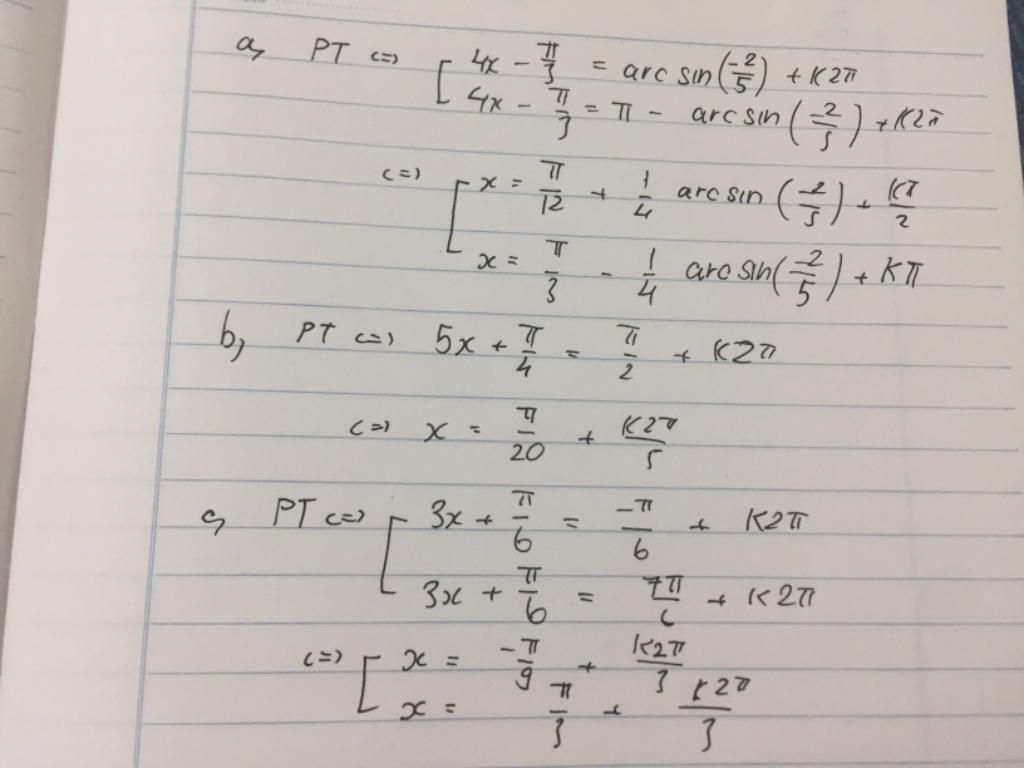 a, PT <=> [ 4x - π/3 = arc sin(-2/5) + K2π
4x - π/3 = π - arc sin(-2/5) + K2π
<=> [ x = π/12 + 1/4 arc sin(-2/5) + Kπ/2
x = π/3 - 1/4 arc sin(-2/5) + Kπ
b, PT <=> 5x + π/4 = π/2 + K2π
<=> x = π/20 + K2π/5
c, PT <=> [ 3x + π/6 = -π/6 + K2π
3x + π/6 = 7π/6 + K2π
<=> [ x = -π/9 + K2π/3
x = π/3 + K2π/3